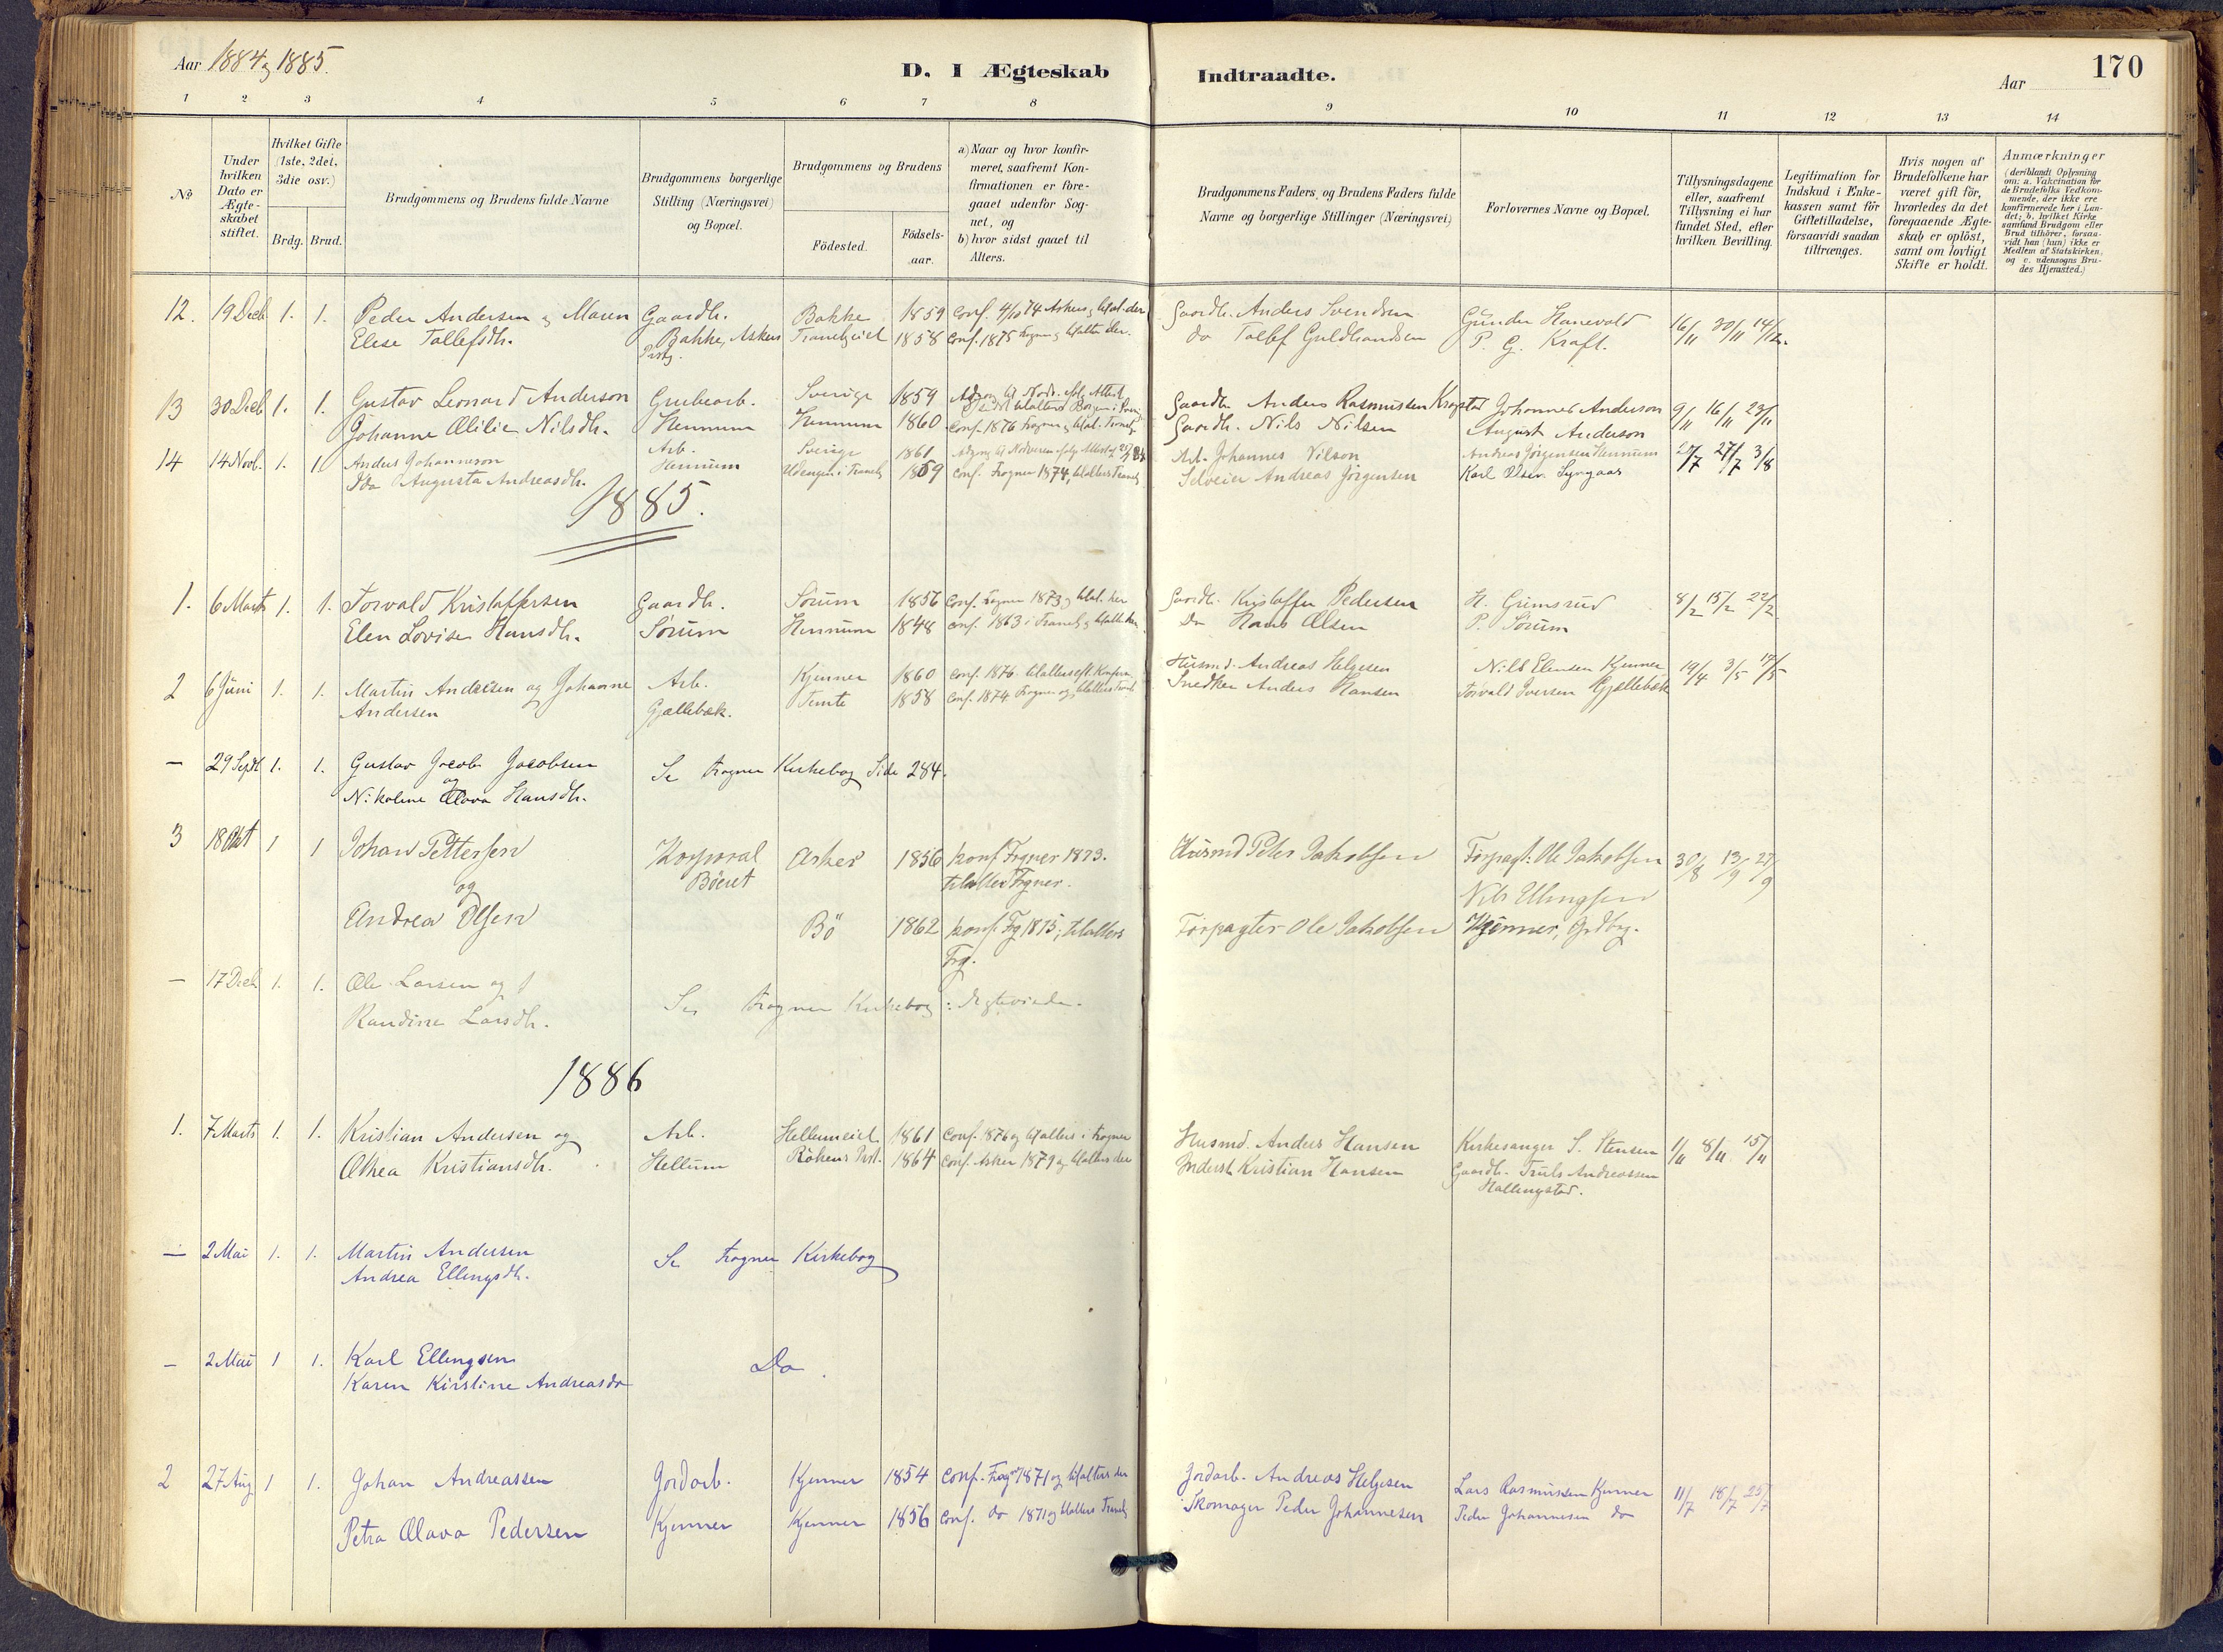 Aar 1884 og 1885.
D. I Ægteskab Indtraadte.
Aar
170
1 2 3 4 5 6 7 8 9 10 11 12 13 14
No
Under hvilken Dato er Ægteskabet stiftet.
Hvilket Gifte (1ste, 2det, 3die osv.)
Brdg. Brud.
Brudgommens og Brudens fulde Navne
Brudgommens borgerlige Stilling (Næringsvei) og Bopæl.
Brudgommens og Brudens
Födested. Födsels-aar.
a) Naar og hvor konfirmeret, saafremt Konfirmationen er foregaaet udenfor Sognet, og
b) hvor sidst gaaet til Alters.
Brudgommens Faders og Brudens Faders fulde Navne og borgerlige Stillinger (Næringsvei)
Forlovernes Navne og Bopæl.
Tillysningsdagene eller, saafremt Tillysning ei har fundet Sted, efter hvilken Bevilling.
Legitimation for Indskud i Enkekassen samt för Giftetilladelse, forsaavidt saadan tiltrænges.
Hvis nogen af Brudefolkene har været gift för, hvorledes da det foregaaende Ægteskab er oplöst, samt om lovligt Skifte er holdt.
Anmærkninger (deriblandt Oplysning om: a. Vakcination for de Brudefolks Vedkommende, der ikke ere konfirmerede her i Landet; b. hvilket Kirke samfund Brudgom eller Brud tilhörer, forsaavidt han (hun) ikke er Medlem af Statskirken, og c. udensogns Brudes Hjemsted.)
12. 19 Decb 1. 1. Peder Andersen og Maren Gaardbr. Bakke 1859 Conf. 4/10 74 Asker og tilal. der Gaardbr. Anders Svendsen Gunder Hanevold 16/11 30/11 14/12.
Elese Tollefsdtr. Bakke, Asker Tranebyeiet 1858 Conf. 1875 Frogner og tilalter der. do Tollef Guldbrandsen P. G. Kraft.
Prstg.
13 30 Decb 1. 1. Gustav Leonard Anderson Grubearb. Sverige 1859 Gaardbr. Anders Rasmussen Johannes Anderson 9/11 16/11 23/11
Johanne Olilie Nilsdtr. Hennum Hennum 1860 Conf. 1876 Frogner og tilal. Traneby Gaardbr. Nils Nilsen August Anderson
14 14 Novb. 1. 1. Anders Johanneson Arb. Sverige 1861 Arb. Johannes Nilson Andreas Jørgensen Hennum 20/7 27/7 3/8
Ida Augusta Andreasdtr. Hennum 1859 Conf. Frogner 1874, tilalters Traneby Selveier Andreas Jörgensen Karl Olsen Lyngaas
1885.
1. 6 Marts 1. 1. Torvald Kristoffersen Gaardbr. Sørum 1856 Conf. Frogner 1873 og tilal. her Gaardbr. Kristoffer Pedersen H. Grimsrud 8/2 15/2 22/2
Elen Lovise Hansdtr. Sørum Hennum 1848 Conf. 1863 i Traneby og tilalt. her Do Hans Olsen P. Sørum
2 6 Juni 1. 1. Martin Andersen og Johanne Arb. Kjenner 1860 Conf. 1876 tilalters eft. Konfirm. Husmd. Andreas Helgesen Nils Elensen Kjenner 19/4 3/5 17/5
Andersen Gjællebæk. Temte 1858 Conf. 1874 Frogner og tilalters Traneb. Snedker Anders Hansen Torvald Iversen Gjællebæk
— 29 Septb 1. 1. Gustav Jacob Jacobsen Se Frogner Kirkebog Side 284.
og
Nikoline Olava Hansdtr.
3 18 Okt 1 1 Johan Pettersen Korporal Asker 1856 konf. Frogner 1873. Husmd Peter Jakobsen Forpagt. Ole Jakobsen 30/8 13/9 27/9
og Böeiet tilalters Frogner. Nils Ellingsen
Andrea Olsen Bö 1862 konf. Frg 1875; tilalters Forpagter Ole Jakobsen Kjenner, Grdbrg.
Frg.
— 17 Decb. 1. 1. Ole Larsen og
Randine Larsdtr. Se Frogner Kirkebog
1886
1. 7 Marts 1. 1. Kristian Andersen og Arb. Hellumeiet 1861 Conf. 1876 og tilalters i Frogner Husmd. Anders Hansen Kirkesanger S. Stensen 1/11 8/11 15/11
Othea Kristiansdtr. Hellum Rökens Prst. 1864 Conf. Asker 1879 og tilalters der Inderst Kristian Hansen Gaardbr. Truls Andreassen
Hallingstad.
— 2 Mai 1. 1. Martin Andersen Se Frogner Kirkebog
Andrea Ellingsdtr.
— 2 Mai 1 1. Karl Ellingsen Do
Karen Kirstine Andreasdr
2 27 Aug 1 1. Johan Andreassen Jordarb. Kjenner 1854 Conf. Frogner 1871 og tilalters der Jordarb. Andreas Helgesen Lars Rasmussen Kjenner 11/7 18/7 25/7
Petra Olava Pedersen Kjenner Kjenner 1856 Conf. do 1871 og tilalters Traneby Skomager Peder Johannesen Peder Johannesen do